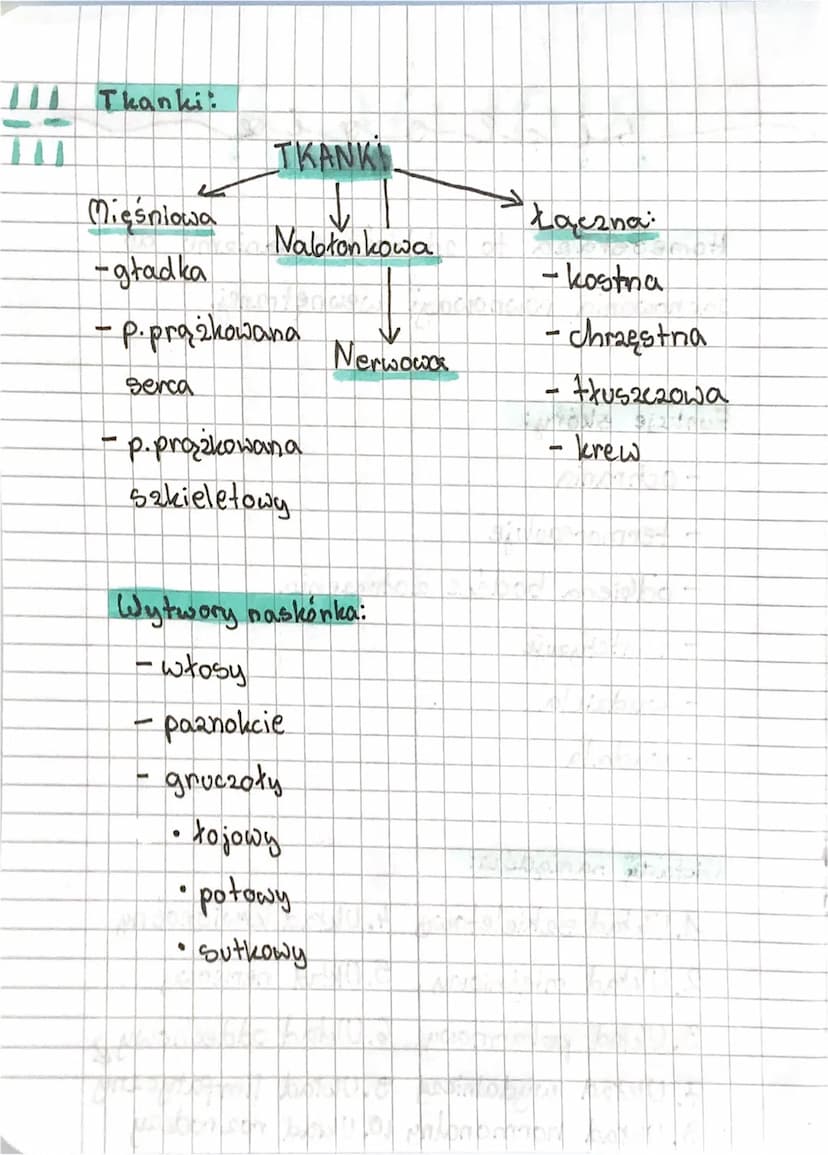 Tkanki:
TKANKI
Mięśniowa
- gładka
- p. prążkowana
serca
- p. prążkowana
szkieletowy
Nabłonkowa
Nerwowa
Łączna:
- kostna
- chrzęstna
- tłuszczowa
- krew
Wytwory naskórka:
- włosy
- paznokcie
- gruczoły
• łojowy
• potowy
• sutkowy